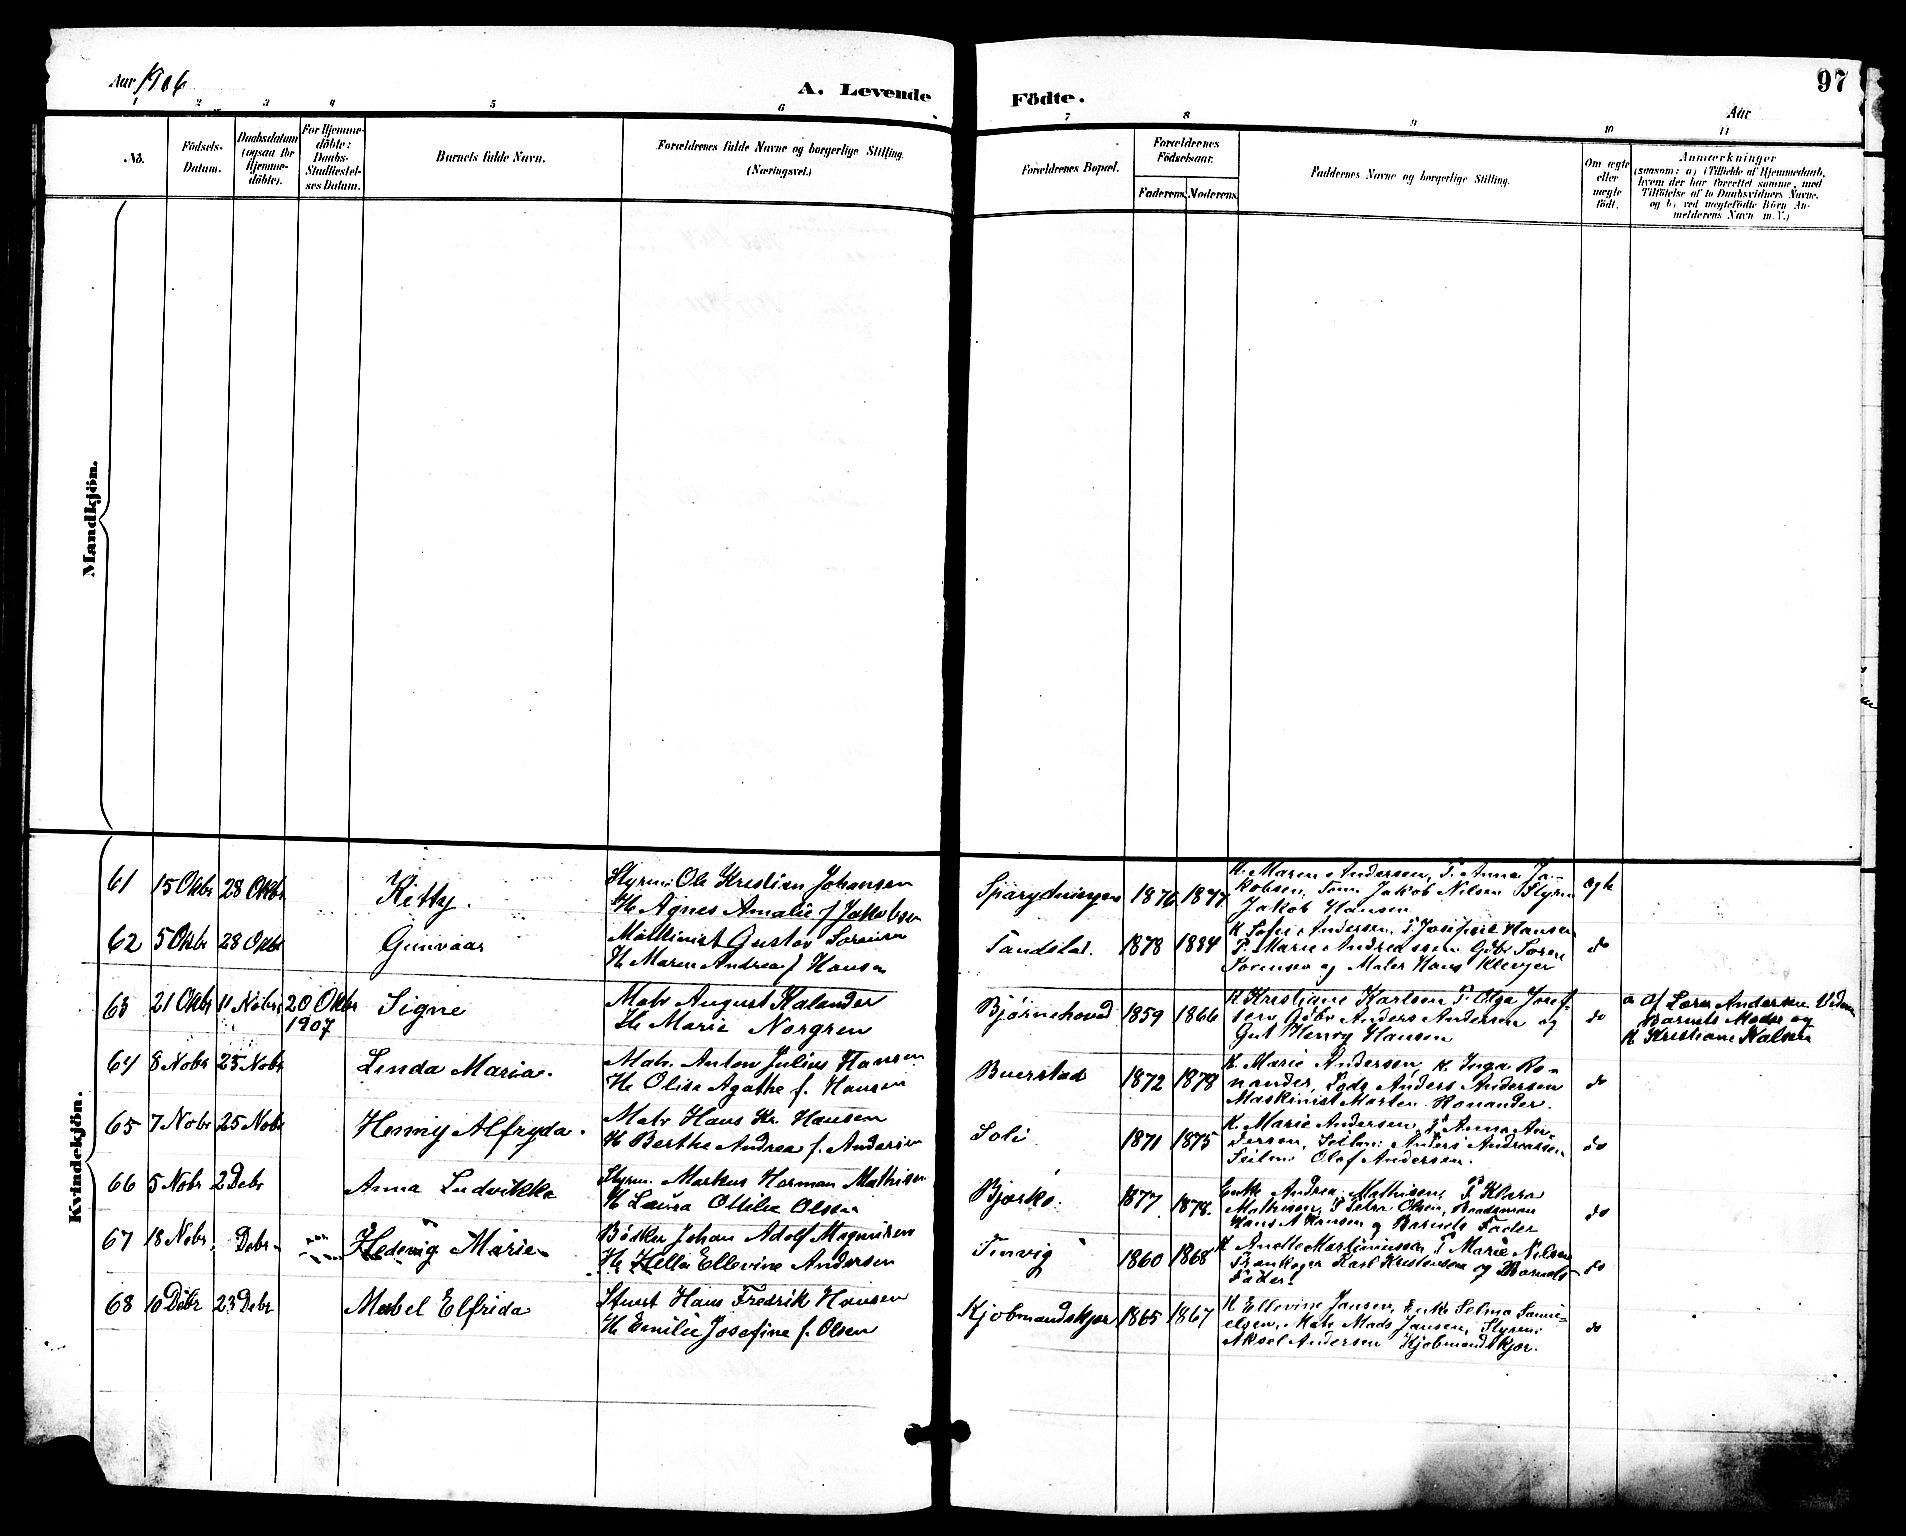 Aar 1906
A. Levende
Födte.
97
Aar
1 2 3 4 5 6 7 8 9 10 11
No.
Födsels-
Datum.
Daabsdatum
(ogsaa for
Hjemme-
döbte).
For Hjemme-
döbte:
Daabs-
Stadfæstel-
ses Datum.
Barnets fulde Navn.
Forældrenes fulde Navne og borgerlige Stilling.
(Næringsvei.)
Forældrenes Bopæl.
Forældrenes
Födselsaar.
Faderens. Moderens.
Faddernes Navne og borgerlige Stilling.
Om ægte
eller
uægte
födt.
Anmærkninger
(saasom: a) i Tilfælde af Hjemmedaab,
hvem der har forrettet samme, med
Tilföielse af to Daabsvidners Navne.
og b) ved uægtefödte Börn An-
melderens Navn m. V.)
Mandkjön.
Kvindekjön.
61 15 Oktbr 28 Oktbr Kitty.
Styrm. Ole Kristian Johansen
H. Agnes Amalie f Jakobsen
1876 1877
K. Maren Andersen, P. Anna Ja-
kobsen, Tøm Jakob Nilsen Styrm
Jakob Hansen
ægte
62 5 Oktbr 28 Oktbr Gunvaar
Maskinist Gustav Sørensen
H. Maren Andrea f Hansen
1878 1884
K Sofie Andersen, P Josefine Hansen
P. Marie Andreassen Gbr Søren
Sørensen og Maler Hans Klevjer
do
63 21 Oktbr 11 Nobr 20 Oktbr
1907
Signe
Matr August Kalander
H. Marie Norgren
Bjørnehoved 1859 1866
K Kristiane Karlsen P. Olga Josef-
sen Gbr Anders Andersen og
Gut Henry Hansen
do
a af Lærer Andersen
Barnets Moder og
K Kristiane Kalsen
64 8 Nobr 25 Nobr Linda Maria.
Matr. Anton Julius Hansen
H. Olise Agathe f. Hansen
Buerstad 1872 1878
K. Marie Andersen, K. Inga Ro-
nander, Lods Anders Andersen
Maskinist Morten Ronander.
do
65 7 Nobr 25 Nobr Henny Alfryda.
Matr Hans Kr. Hansen
H Berthe Andrea f. Andersen
Soli 1871 1875
K. Marie Andersen, P Anna An-
dersen, Seilm: Anders Andreassen
Seilm: Olaf Andersen.
do
66 5 Nobr 2 Debr Anna Ludvikke
Styrm. Markus Herman Mathisen
H Laura Ottilie Olsen
Bjerkø. 1877 1878.
Enke Andrea Mathisen, P Klara
Mathisen, P Petra Olsen, Baadsman
Hans A Hansen og Barnets Fader
do
67 18 Nobr. Debr. Hedevig Marie
Bødker Johan Adolf Magnusen
H. Helle Ellevine Andersen
Tenvig 1860 1868
K Anette Martiniussen P Marie Nilsen
Karl Kristensen og Barnets
Fader.
do
68 10 Debr 23 Debr Mabel Elfrida
Stuert Hans Fredrik Hansen
H. Emilie Josefine f. Olsen
Kjøbmandskjær 1865 1867
K Ellevine Jansen, Enke Selma Samu-
elsen, Matr Mads Jansen, Styrm:
Aksel Andersen Kjøbmandskjær.
do